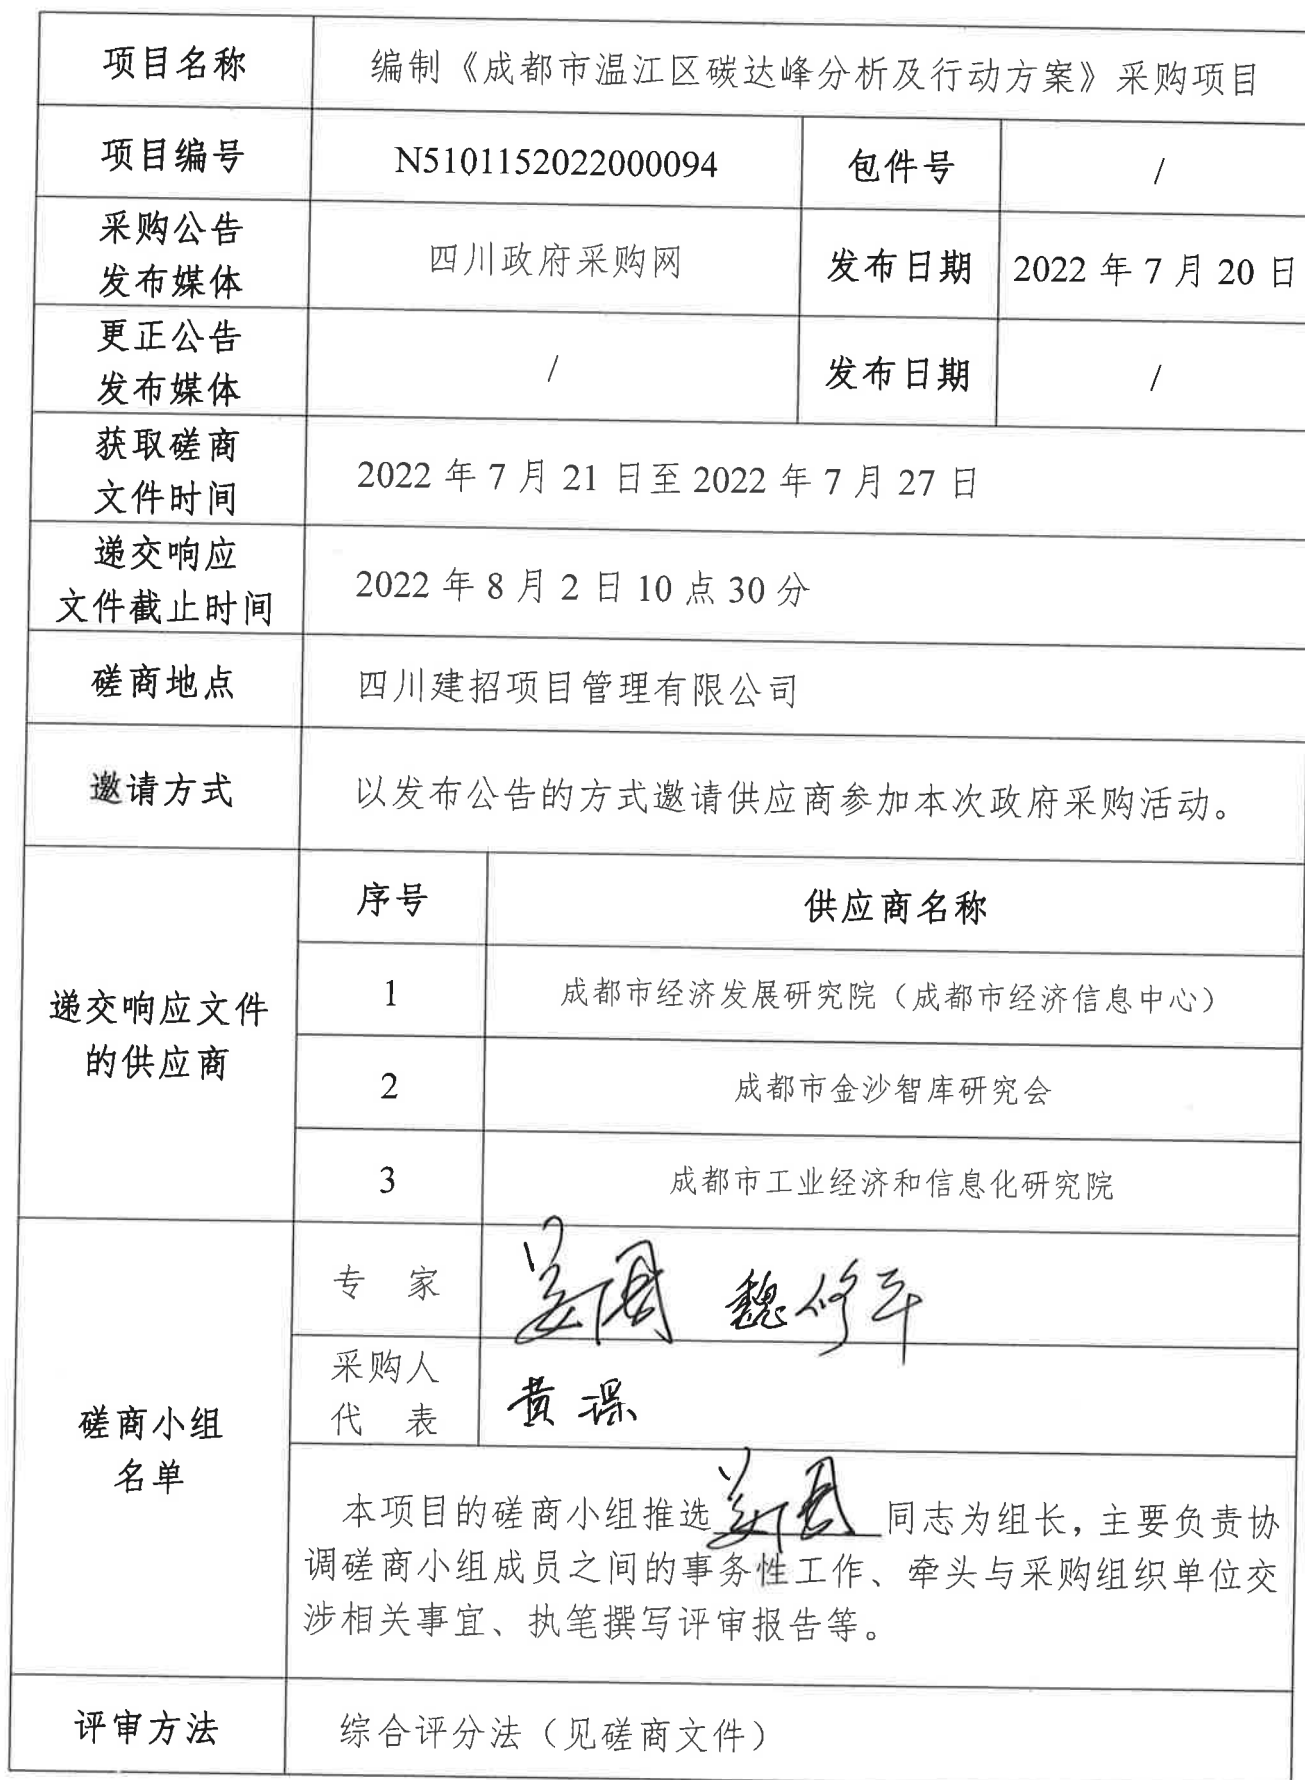 项目名称 编制《成都市温江区碳达峰分析及行动方案》采购项目
项目编号 N5101152022000094 包件号 /
采购公告
发布媒体 四川政府采购网 发布日期 2022 年 7 月 20 日
更正公告
发布媒体 / 发布日期 /
获取磋商
文件时间 2022 年 7 月 21 日至 2022 年 7 月 27 日
递交响应
文件截止时间 2022 年 8 月 2 日 10 点 30 分
磋商地点 四川建招项目管理有限公司
邀请方式 以发布公告的方式邀请供应商参加本次政府采购活动。
递交响应文件
的供应商
序号 供应商名称
1 成都市经济发展研究院（成都市经济信息中心）
2 成都市金沙智库研究会
3 成都市工业经济和信息化研究院
磋商小组
名单
专 家 魏修平
采购人
代 表 黄
本项目的磋商小组推选 同志为组长，主要负责协
调磋商小组成员之间的事务性工作、牵头与采购组织单位交
涉相关事宜、执笔撰写评审报告等。
评审方法 综合评分法（见磋商文件）